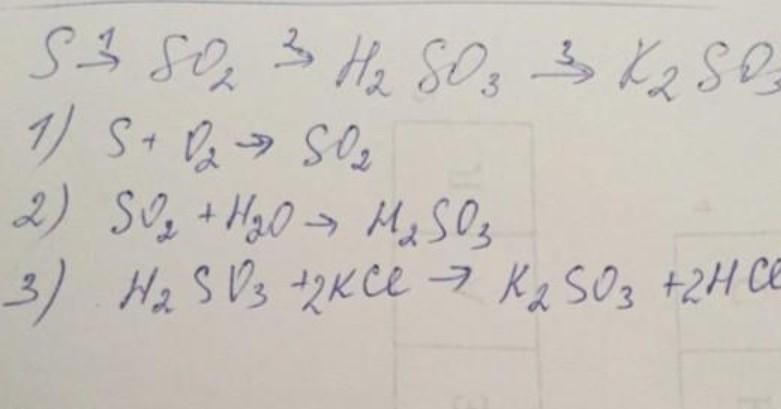 S 1→ SO₂ 2→ H₂SO₃ 3→ K₂SO₃
1) S + O₂ → SO₂
2) SO₂ + H₂O → H₂SO₃
3) H₂SO₃ + 2KCl → K₂SO₃ + 2HCl